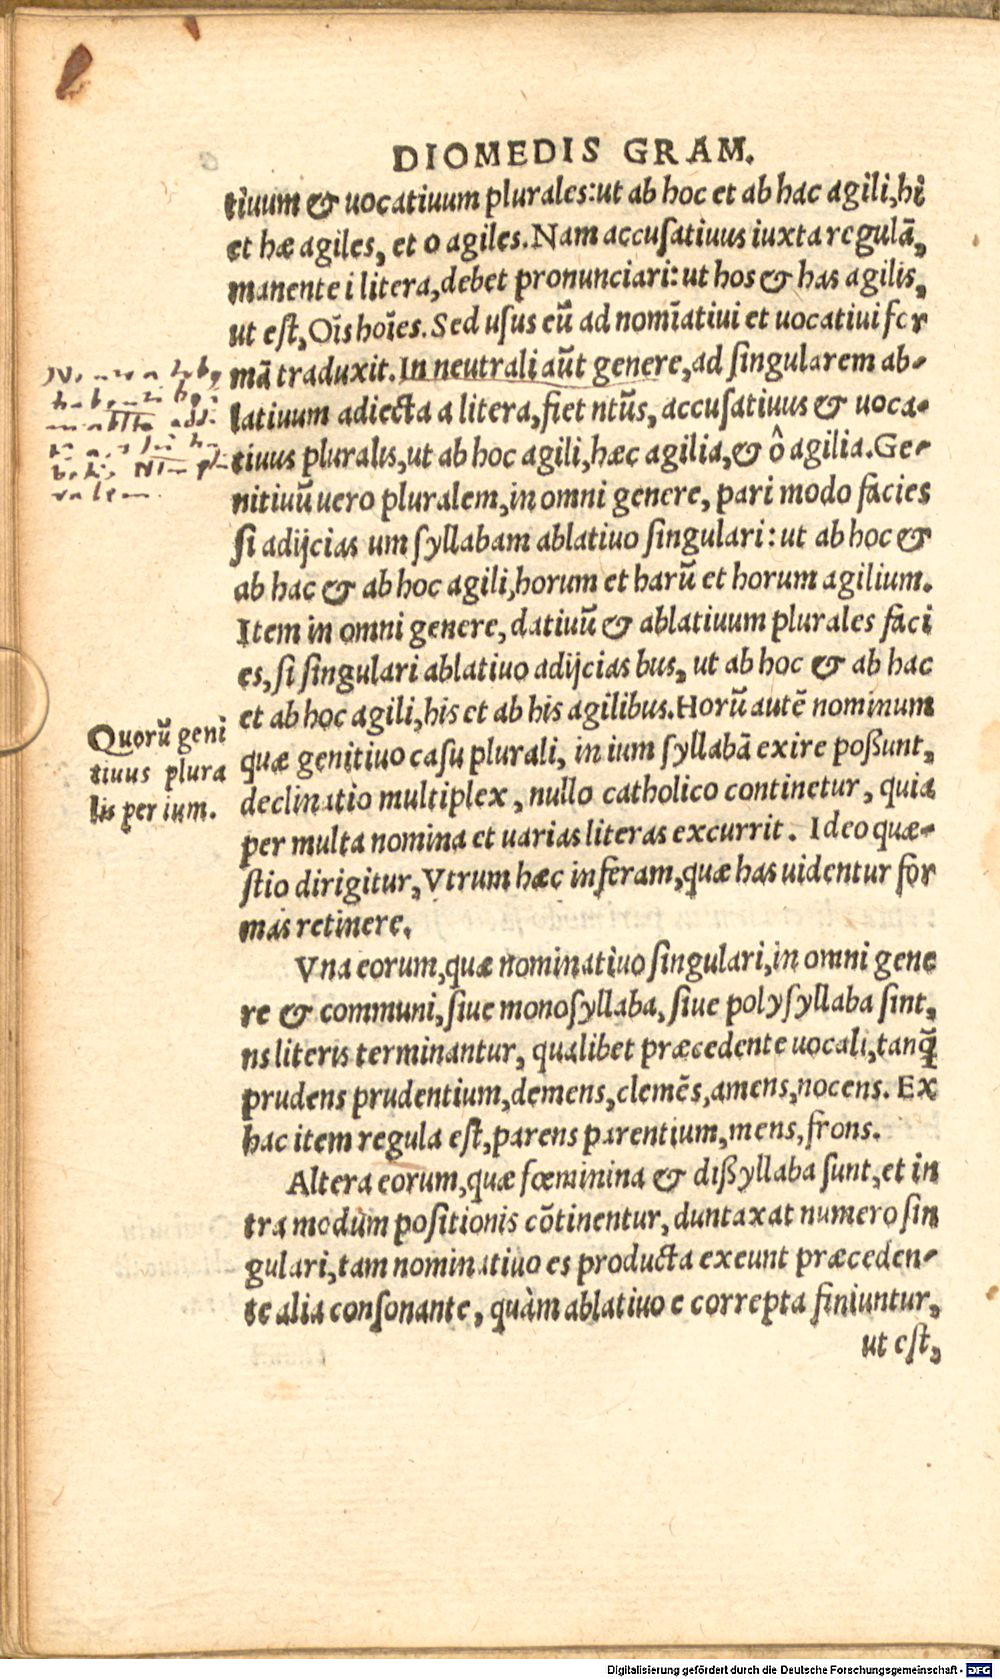 DIOMEDIS GRAM.
tiuum & uocatiuum plurales: ut ab hoc et ab hac agili, hi
et hæ agiles, et o agiles. Nam accusatiuus iuxta regulã,
manente i litera, debet pronunciari: ut hos & has agilis,
ut est, Oĩs hoĩes. Sed usus eũ ad nomĩatiui et uocatiui for
mã traduxit. In neutrali aũt genere, ad singularem ab-
latiuum adiecta a litera, fiet ntũs, accusatiuus & uoca-
tiuus pluralis, ut ab hoc agili, hæc agilia, & ô agilia. Ge-
nitiuũ uero pluralem, in omni genere, pari modo facies
si adijcias um syllabam ablatiuo singulari: ut ab hoc &
ab hac & ab hoc agili, horum et harũ et horum agilium.
Item in omni genere, datiuũ & ablatiuum plurales faci
es, si singulari ablatiuo adijcias bus, ut ab hoc & ab hac
et ab hoc agili, his et ab his agilibus. Horũ autẽ nominum
Quorũ geni
tiuus plura
lis per ium.
quæ genitiuo casu plurali, in ium syllabã exire poßunt,
declinatio multiplex, nullo catholico continetur, quia
per multa nomina et uarias literas excurrit. Ideo quæ-
stio dirigitur, Vtrum hæc inferam, quæ has uidentur for
mas retinere.
Vna eorum, quæ nominatiuo singulari, in omni gene
re & communi, siue monosyllaba, siue polysyllaba sint,
ns literis terminantur, qualibet præcedente uocali, tanq̃
prudens prudentium, demens, clemẽs, amens, nocens. Ex
hac item regula est, parens parentium, mens, frons.
Altera eorum, quæ fœminina & dißyllaba sunt, et in
tra modum positionis cõtinentur, duntaxat numero sin
gulari, tam nominatiuo es producta exeunt præceden-
te alia consonante, quàm ablatiuo e correpta finiuntur,
ut est,
Digitalisierung gefördert durch die Deutsche Forschungsgemeinschaft - DFG